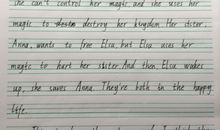 she can't control her magic, and she uses her
magic to destroy her kingdom. Her sister,
Anna, wants to free Elsa, but Elsa uses her
magic to hurt her sister. And then, Elsa wakes
up, she saves Anna. They're both in the happy
life.